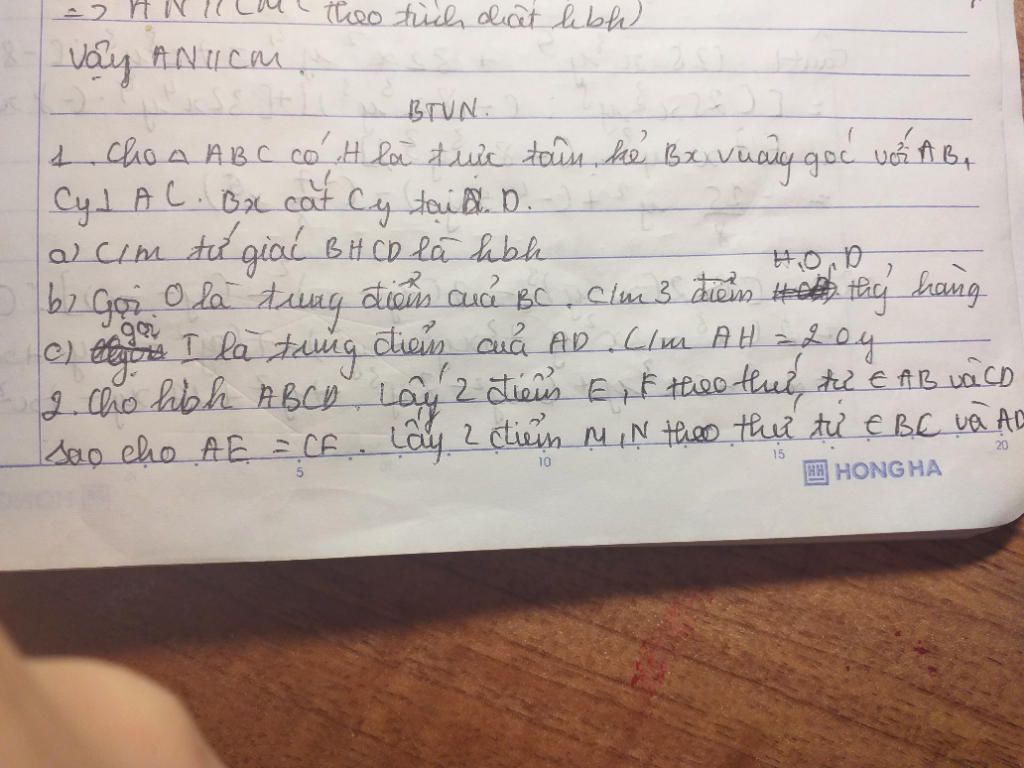 => AN // CM ( theo tính chất hbh)
Vậy AN // CM.
BTVN.
1. Cho △ ABC có H là trực tâm, kẻ Bx vuông góc với AB,
Cy ⊥ AC. Bx cắt Cy tại D.
a) C/m tứ giác BHCD là hbh
b) Gọi O là trung điểm của BC. C/m 3 điểm H, O, D thg hàng
c) gọi I là trung điểm của AD. C/m AH = 2 Oy
2. Cho hbh ABCD. Lấy 2 điểm E, F theo thứ tự ∈ AB và CD
sao cho AE = CF. Lấy 2 điểm M, N theo thứ tự ∈ BC và AD
5 10 15 20
HH HONG HA